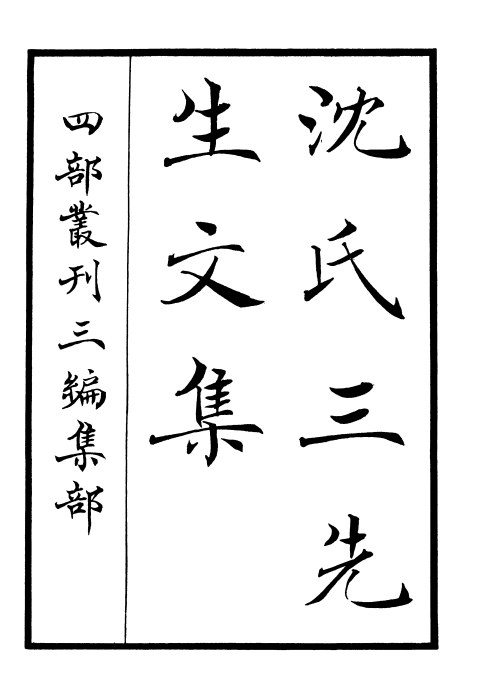 沈氏三先
生文集
四部叢刊三編集部